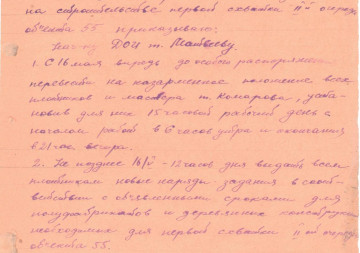 на строительстве первой схватки II очер.
объекта 55 приказываю:
Нач-ку ДОЦ т. Матвееву.
1. С 16 мая впредь до особого распоряжения
перевести на казарменное положение всех
плотников и мастера т. Комарова, уста-
новив для них 15 часовой рабочий день с
началом работ в 6 часов утра и окончания
в 21 час вечера.
2. Не позднее 16/V - 12 часов дня выдать всем
плотникам новые наряды задания в соот-
ветствии с объявленными сроками для
полуфабрикатов и деревянных конструкций
необходимых для первой схватки II ой очер.
объекта 55.